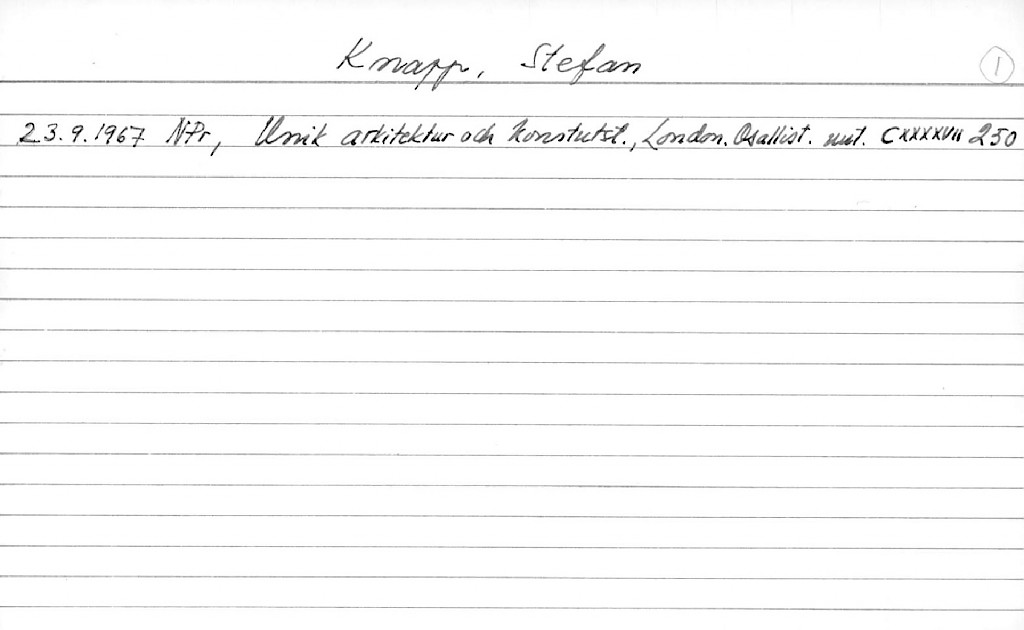 Knapp, Stefan
1
23.9.1967 NPr, Unik arkitektur och konstutst., London. Osallist. mt. CXXXXVII 250